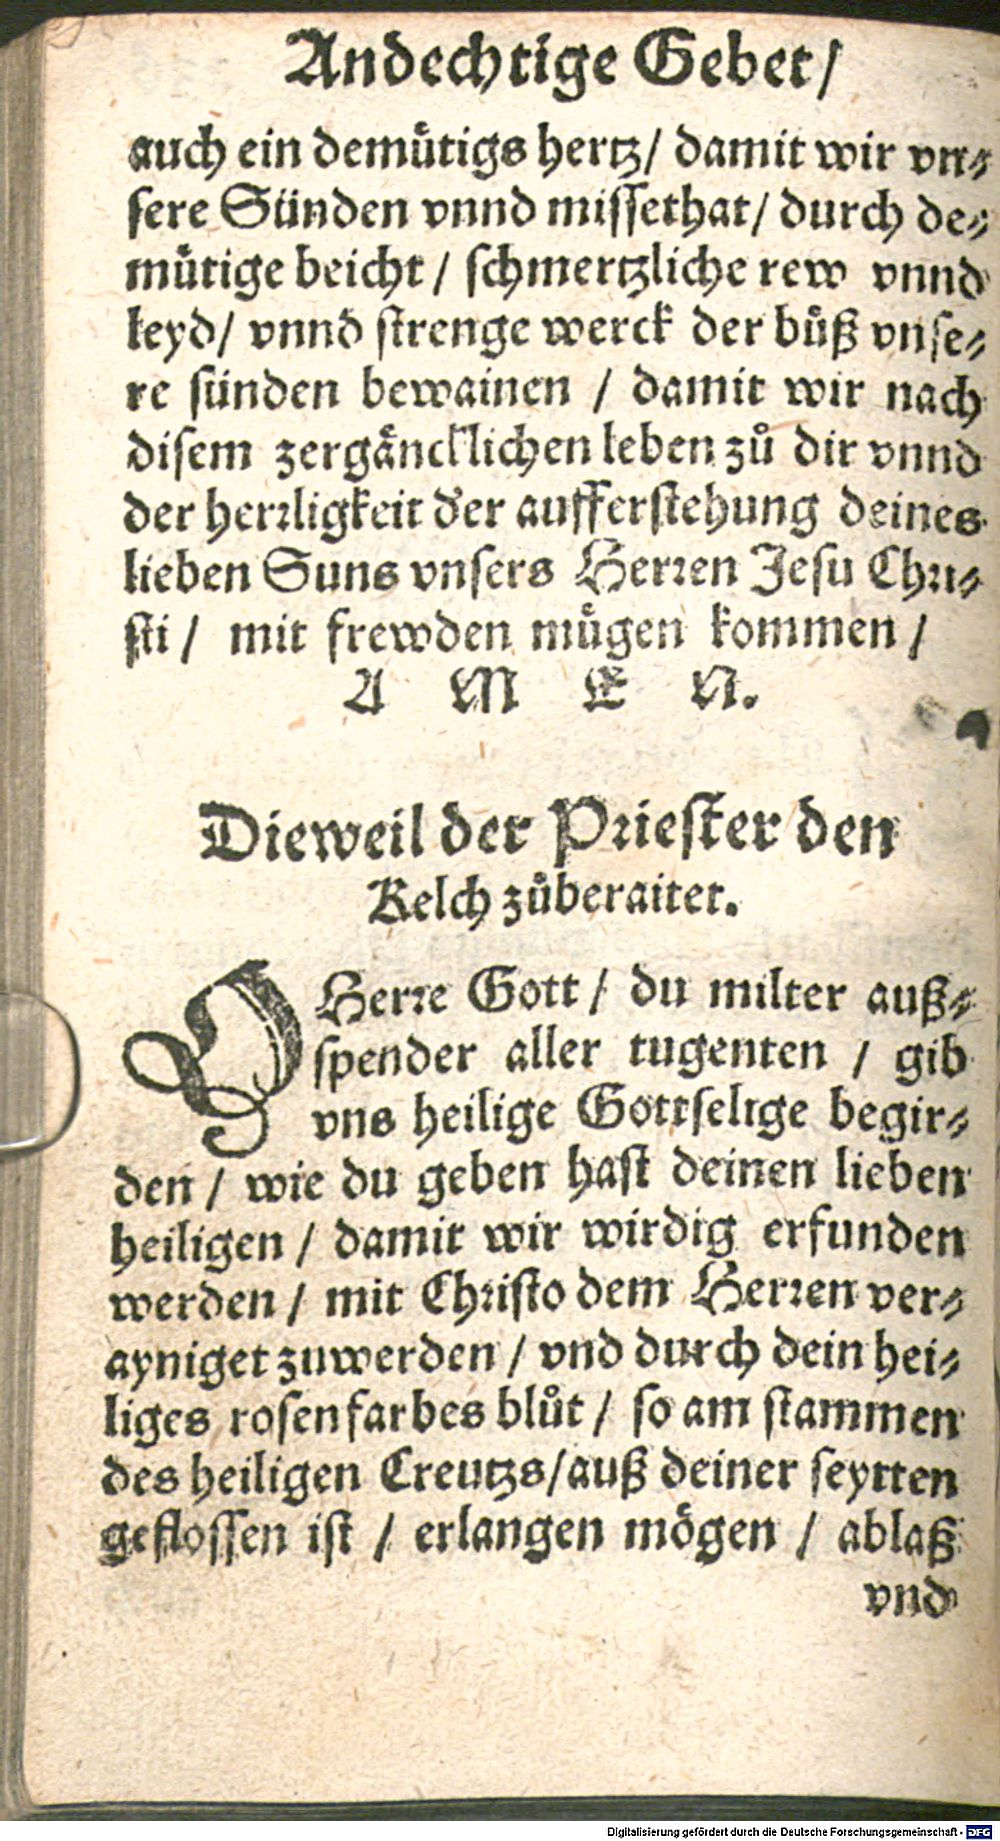 Andechtige Gebet/
auch ein demuͤtigs hertz/ damit wir vn⸗
sere Sünden vnnd missethat/ durch de⸗
muͤtige beicht / schmertzliche rew vnnd
leyd/ vnnd strenge werck der buͤß vnse⸗
re sünden bewainen / damit wir nach
disem zergaͤncklichen leben zuͦ dir vnnd
der herrligkeit der aufferstehung deines
lieben Suns vnsers Herren Jesu Chri⸗
sti / mit frewden muͤgen kommen /
A M E N.
Dieweil der Priester den
Kelch zuͦberaitet.
O Herre Gott / du milter auß⸗
spender aller tugenten / gib
vns heilige Gottselige begir⸗
den / wie du geben hast deinen lieben
heiligen / damit wir wirdig erfunden
werden / mit Christo dem Herren ver⸗
ayniget zuwerden / vnd durch dein hei⸗
liges rosenfarbes bluͦt / so am stammen
des heiligen Creutzs/auß deiner seytten
geflossen ist / erlangen moͤgen / ablaß
vnd
Digitalisierung gefördert durch die Deutsche Forschungsgemeinschaft - DFG